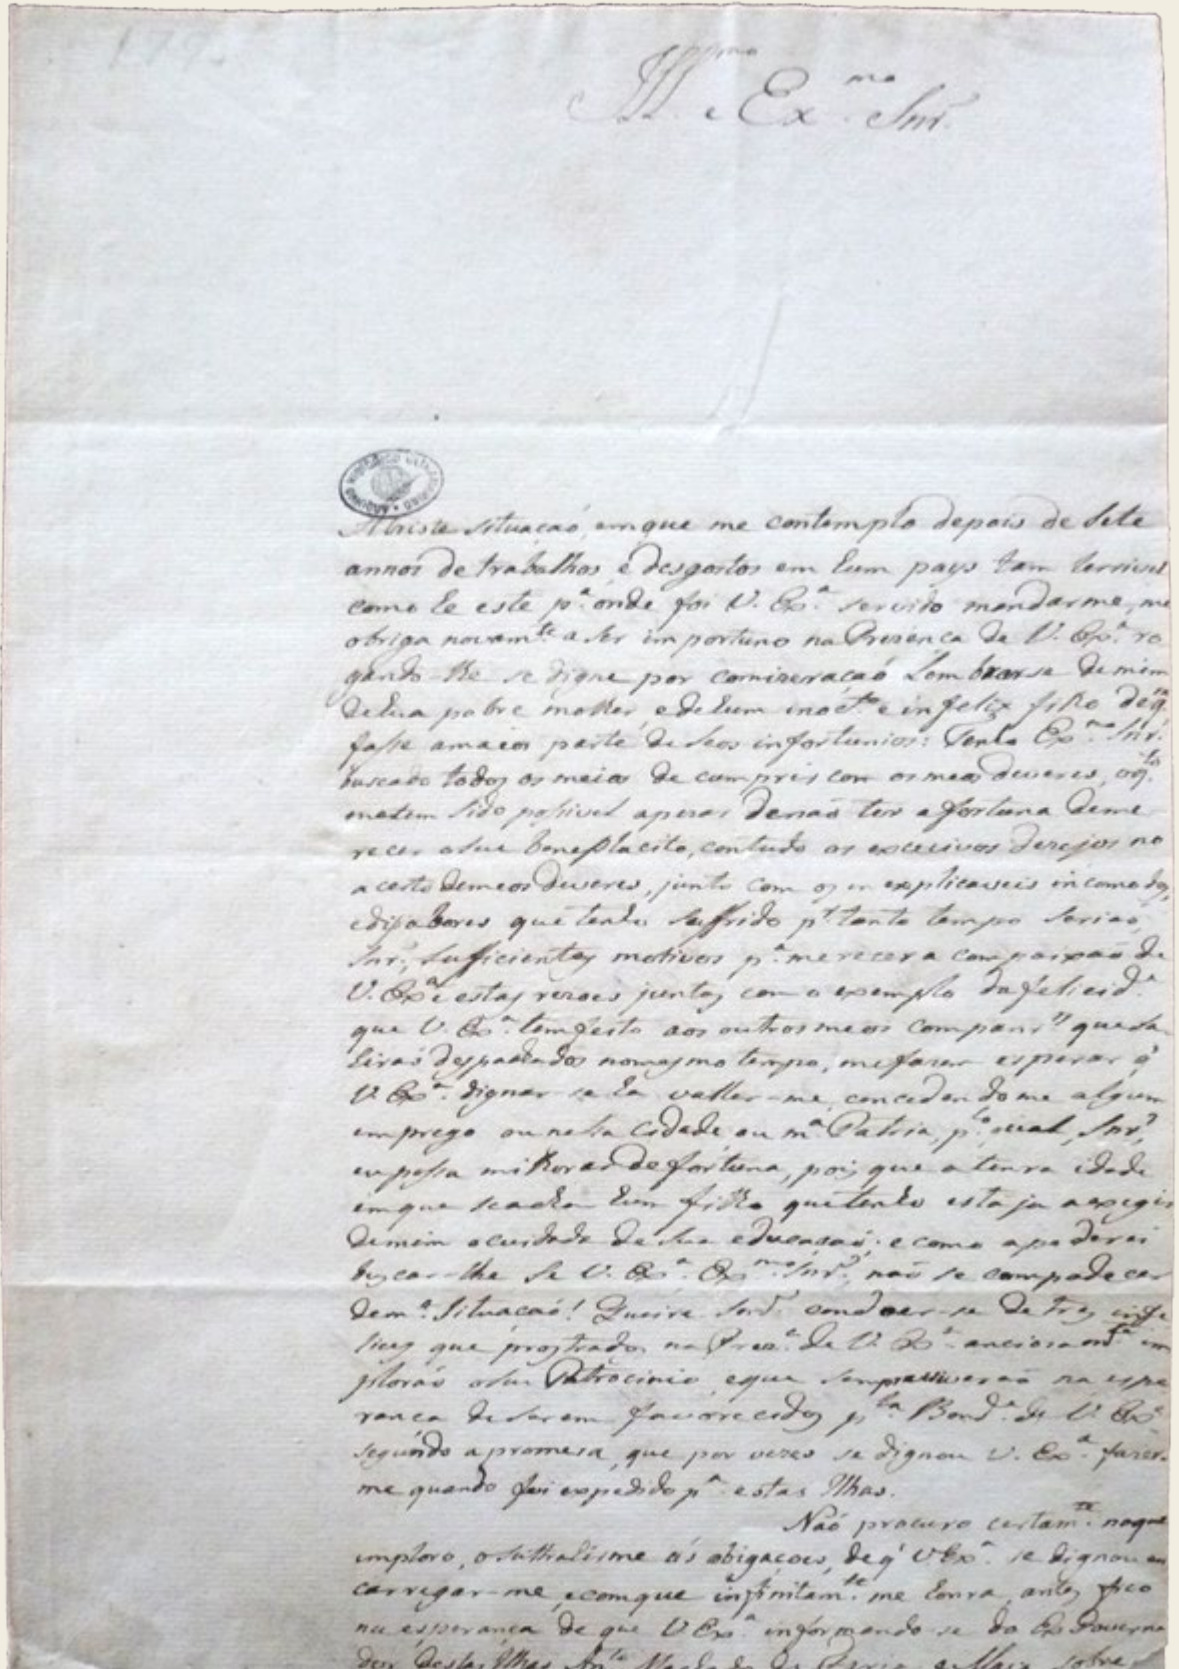 179
Ill.mo e Ex.mo Snr.
ARQUIVO HISTÓRICO ULTRAMARINO
A triste situação, em que me contemplo depois de Sete
annos de trabalhos, e desgostos em hum pays tam terrivel
como he este p.a onde foi V. Ex.a servido mandarme, me
obriga novam.te a ser importuno na Prezença de V. Ex.a ro
gando-lhe se digne por comizeração Lembrarse de mim
de hua pobre molher, e de hum inoc.te e infeliz filho de q.m
fasse a maior parte de seos infortunios: Tenho Ex.mo Snr.
buscado todos os meios de cumprir com os meos deveres, 
me tem sido posivel apezar de não ter a fortuna de me
recer o seu beneplacito, contudo os excecivos dezejos no
acerto de meos deveres, junto com os inexplicaveis incomodos,
e disabores que tenho suffrido p.r tanto tempo serião,
Snr., sufficientes motivos p.a merecer a compaixão de
V. Ex.a e estas rezoes juntas com o exemplo da felicid.e
que V. Ex.a tem feito aos outros meos companr.os que sa
hirão despachados no mesmo tempo, me fazem esperar q'
V. Ex.a dignar-se ha valler-me, concedendo me algum
emprego ou nessa cidade, ou m.a Patria, p.lo qual, Snr.,
eu possa milhorar de fortuna, pois que a tenra idade
em que se acha hum filho que tenho esta ja a exegir
de mim o cuidado de sua educação; e como a poderei
buscar-lhe se V. Ex.a Ex.mo Snr., não se compadecer
de m.a Situação! Queira Snr. condoer-se de tres infe
lices que prostrados na Prez.a de V. Ex.a anciozam.te im
plorão o seu Patrocinio, e que sempre viverão na espe
rança de serem favorecidos p.la Bond.e de V. Ex.a
segundo a promesa, que por vezes se dignou V. Ex.a fazer-
me quando fui expedido p.a estas Ilhas.
Não procuro certam.te no que
imploro, o subtrahirme ás obigaçoes, de q' V Ex.a se dignou en
carregar-me, e com que infinitam.te me honra, antes fico
na esperança de que V Ex.a informando-se do Ex Governa
dor destas Ilhas Ant.o Machado de Faria e Maia sobre